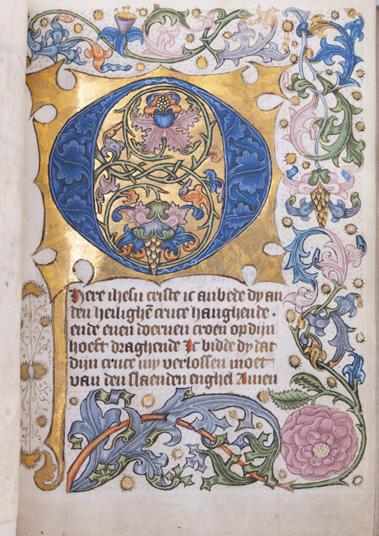 O
Here ihesu criste ic anbede dy an
den heilighē cruce hanghende ·
ende enen doernen croen op dijn
hoeft draghende Ic bidde dy dat
dijn cruce my verlossen moet
van den slaenden enghel Amen